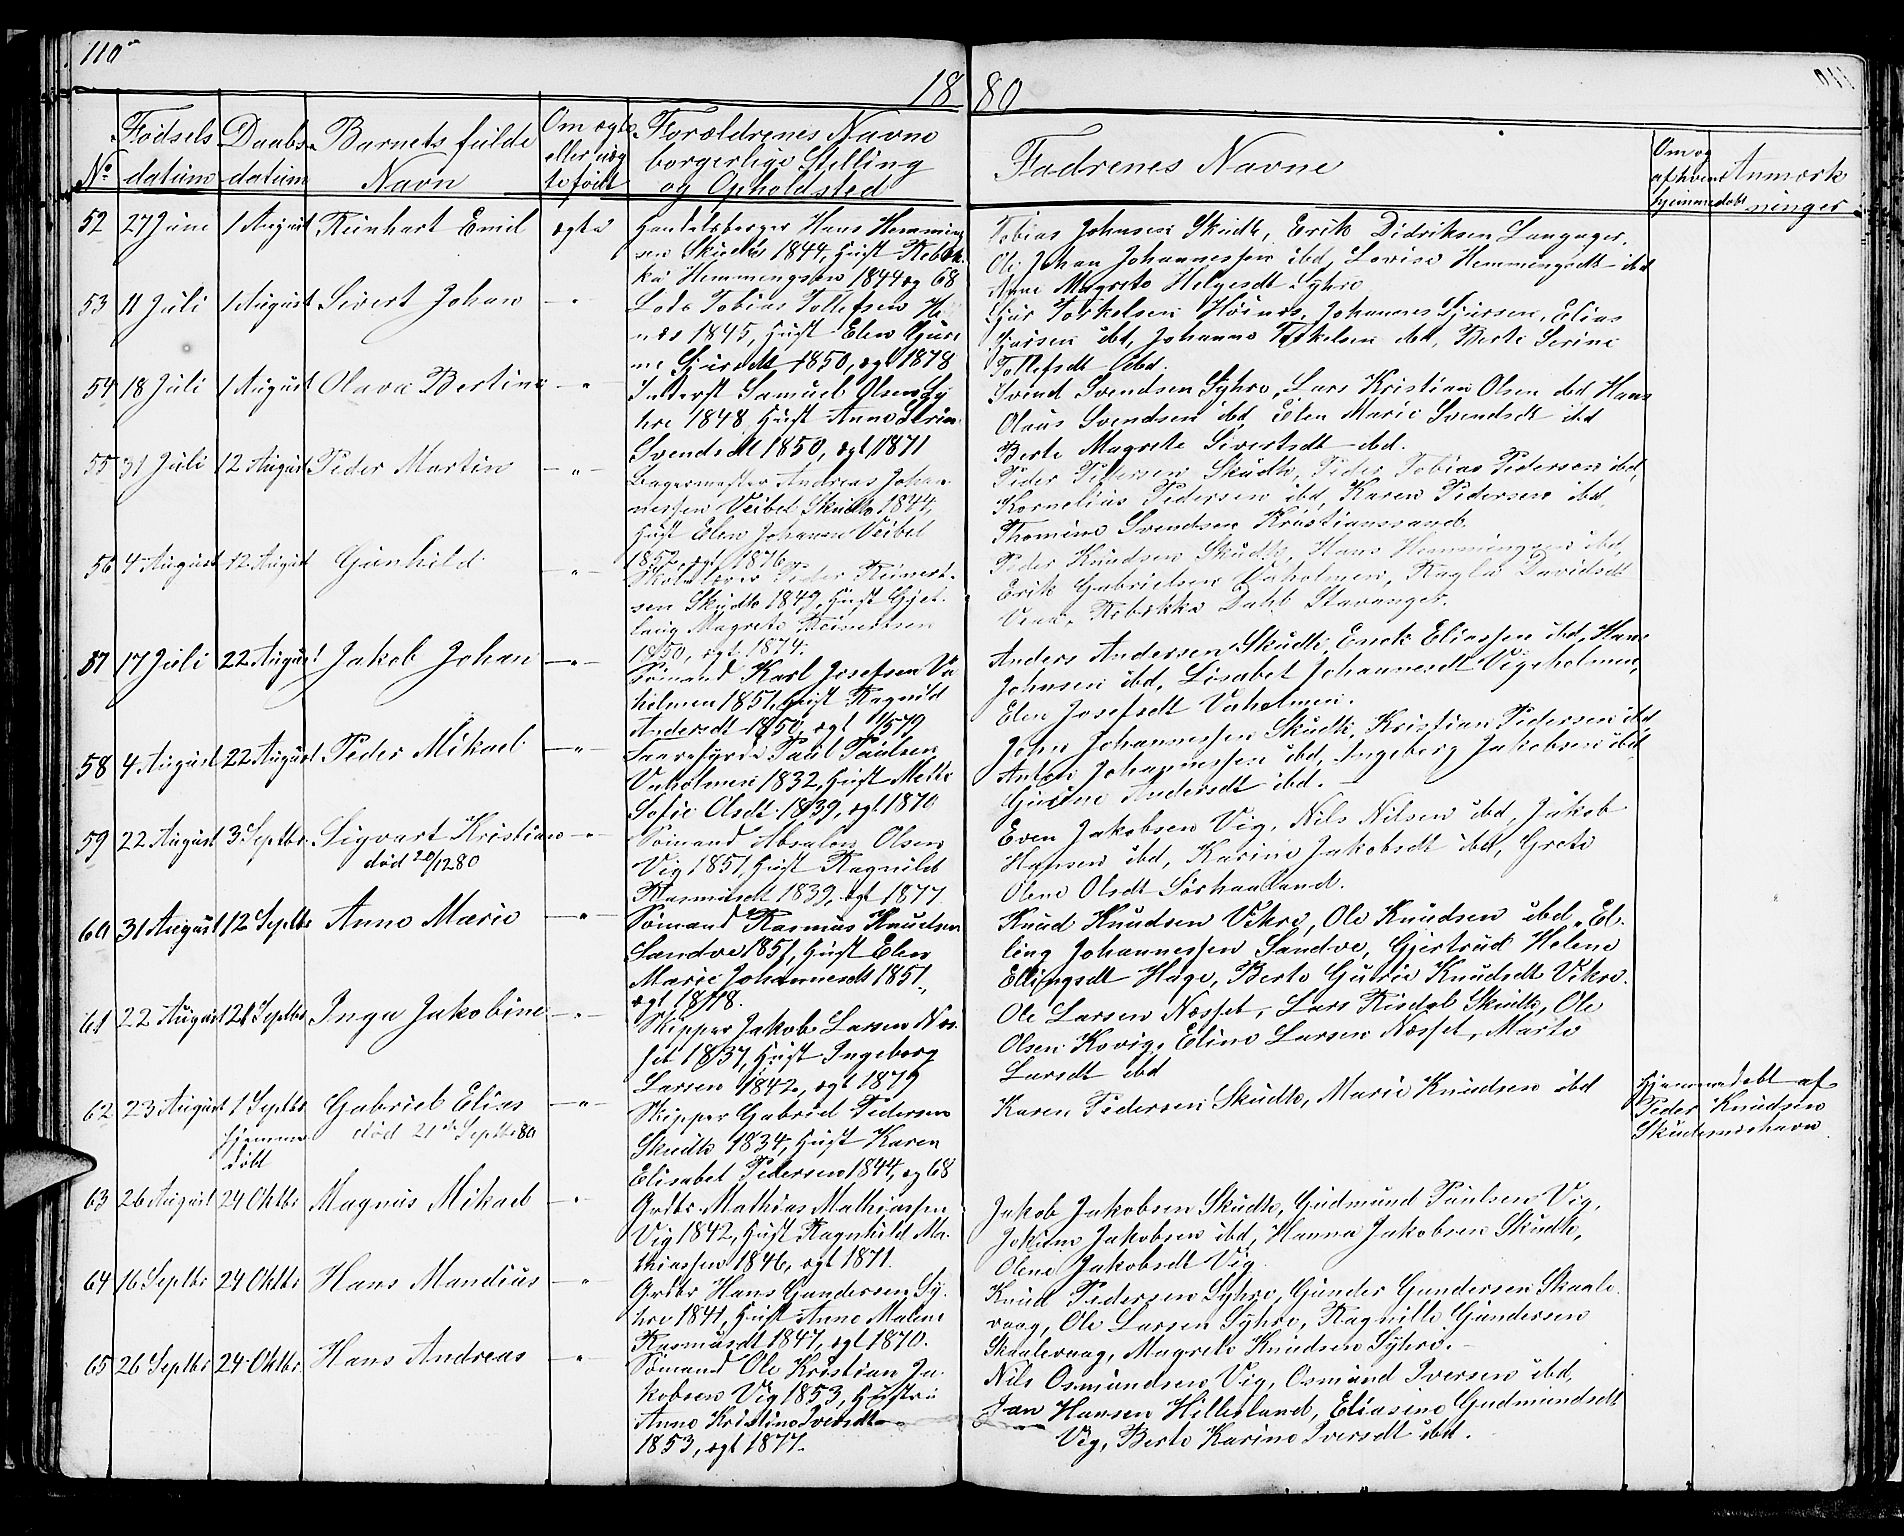 110
18 80
No
Fødsels datum
Daabs datum
Barnets fulde Navn
Om ægte eller uæg te født
Forældrenes Navne borgerlige Stilling og Opholdsted
Fadrenes Navne
Om og af hvem hjemmedøbt
Anmærk ninger
52 27 Juni 1 August Reinhart Emil ægte
Handelsborger Hans Hemming
sen Skudts 1844, Hust Rebek
ka Hemmingsen 1844 og 68
Tobias Johnsen Skudts, Erik Didriksen Langager,
Ole Johan Johannessen ibd, Lovise Hemmingsdt ibd
Ane Magrete Helgesdt Syhre
53 11 Juli 1 August Sivert Johan - " -
Lods Tobias Tollefsen Hø
næs 1845, Hust Elen Gjuri
ne Sjursdt 1850, ægt 1878
Sjur Torkelsen Høinæs, Johannes Sjursen, Elias
Sjursen ibd, Johanne Torkelsen ibd, Berte Serine
Tollefsdt ibd.
54 18 Juli 1 August Olava Bertine - " -
Inderst Samuel Olsen Sy
hre 1848, Hust Anne Serin
Svendsdt 1850, ægt 1871
Svend Svendsen Syhre, Lars Kristian Olsen ibd, Hans
Olaus Svendsen ibd, Elen Marie Svendsdt ibd
Berte Magrete Sivertsdt ibd.
55 31 Juli 12 August Peder Martin - " -
Bagermester Andreas Johan
nessen Veibel Skudts 1844,
Hust Elen Johanne Veibel
1852, ægt 1876.
Peder Pedersen Skudts, Peder Tobias Pedersen ibd,
Kornelius Pedersen ibd, Karen Pedersen ibd,
Thomine Svendsen Kristianssand.
56 4 August 12 August Gunhild - " -
Skolelærer Peder Reinert-
sen Skudts 1849, Hust Gjet
laug Magrete Reinertsen
1850, ægt 1874.
Peder Knudsen Skudts, Hans Hemmingsen ibd,
Erik Gabrielsen Vaholmen, Ragla Davidsdt
Rebekka Dahl Stavanger.
57 17 Juli 22 August Jakob Johan - " -
Sømand Karl Josefsen Va
holmen 1851, Hust Ragnild
Andersdt 1850, ægt 1/5 79
Anders Andersen Skudts, Enok Eliassen ibd, Hans
Johnsen ibd, Lisabet Johannesdt Vigeholmen,
Elen Josefsdt Vaholmen.
58 4 August 22 August Peder Mikael - " -
Paul Paulsen
Vaholmen 1832, Hust Mette
Sofie Olsdt 1839, ægt 1870
John Johannessen Skudts, Kristian Pedersen ibd
Anton Johannessen ibd, Ingeborg Jakobsen ibd
Gurine Andersdt ibd.
59 22 August 3 Septbr Sigvart Kristian - " -
død 20/12 80
Sømand Absalon Olsen
Vig 1851, Hust Ragnild
Rasmusdt 1839, ægt 1877
Even Jakobsen Vig, Nils Nilsen ibd, Jakob
Hansen ibd, Karine Jakobsdt ibd, Grete
Oline Olsdt Sørhaaland.
60 31 August 12 Septbr Anne Marie - " -
Sømand Rasmus Knudsen
Sandve 1851, Hust Elen
Marie Johannesdt 1851,
ægt 1878.
Knud Knudsen Vikre, Ole Knudsen ibd, El-
ling Johannessen Sandve, Gjertrud Helene
Ellingsdt Hage, Berte Gurie Knudsdt Vikre.
61 22 August 12 Septbr Inga Jakobine - " -
Skipper Jakob Larsen Næs
set 1837, Hust Ingeborg
Larsen 1842, ægt 1879
Ole Larsen Næsset, Lars Risdal Skudts, Ole
Olsen Kovig, Eline Larsen Næsset, Marte
Larsdt ibd
62 23 August 1 Septbr Gabriel Elias - " -
hjemme døbt
død 21de Septbr 80
Skipper Gabriel Pedersen
Skudts 1834, Hust Karen
Elisabet Pedersen 1844, æg 68
Karen Pedersen Skudts, Marie Knudsen ibd
Hjemmedøbt af
Peder Knudsen
Skudesneshavn
63 26 August 24 Oktbr Magnus Mikael - " -
Grdbr Mathias Mathiassen
Vig 1842, Hust Ragnhild Ma-
thiassen 1846, ægt 1871.
Jakob Jakobsen Skudts, Gudmund Paulsen Vig,
Jokum Jakobsen ibd, Hanna Jakobsen Skudts,
Oline Jakobsdt Vig.
64 16 Septbr 24 Oktbr Hans Mandius - " -
Grdbr Hans Gundersen Sy-
hre 1841, Hust Anne Malene
Rasmusdt 1847, ægt 1870.
Knud Pedersen Syhre, Gunder Gundersen Skaale
vaag, Ole Larsen Syhre, Ragnille Gundersen
Skaalevaag, Magrete Knudsen Syhre.
65 26 Septbr 24 Oktbr Hans Andreas - " -
Sømand Ole Kristian Ja-
kobsen Vig 1853, Hustru
Anne Kristine Iversdt
1853, ægt 1877.
Nils Osmundsen Vig, Osmund Iversen ibd,
Jan Hansen Hillesland, Eliasine Gudmundsdt
Vig, Berte Karine Iversdt ibd.